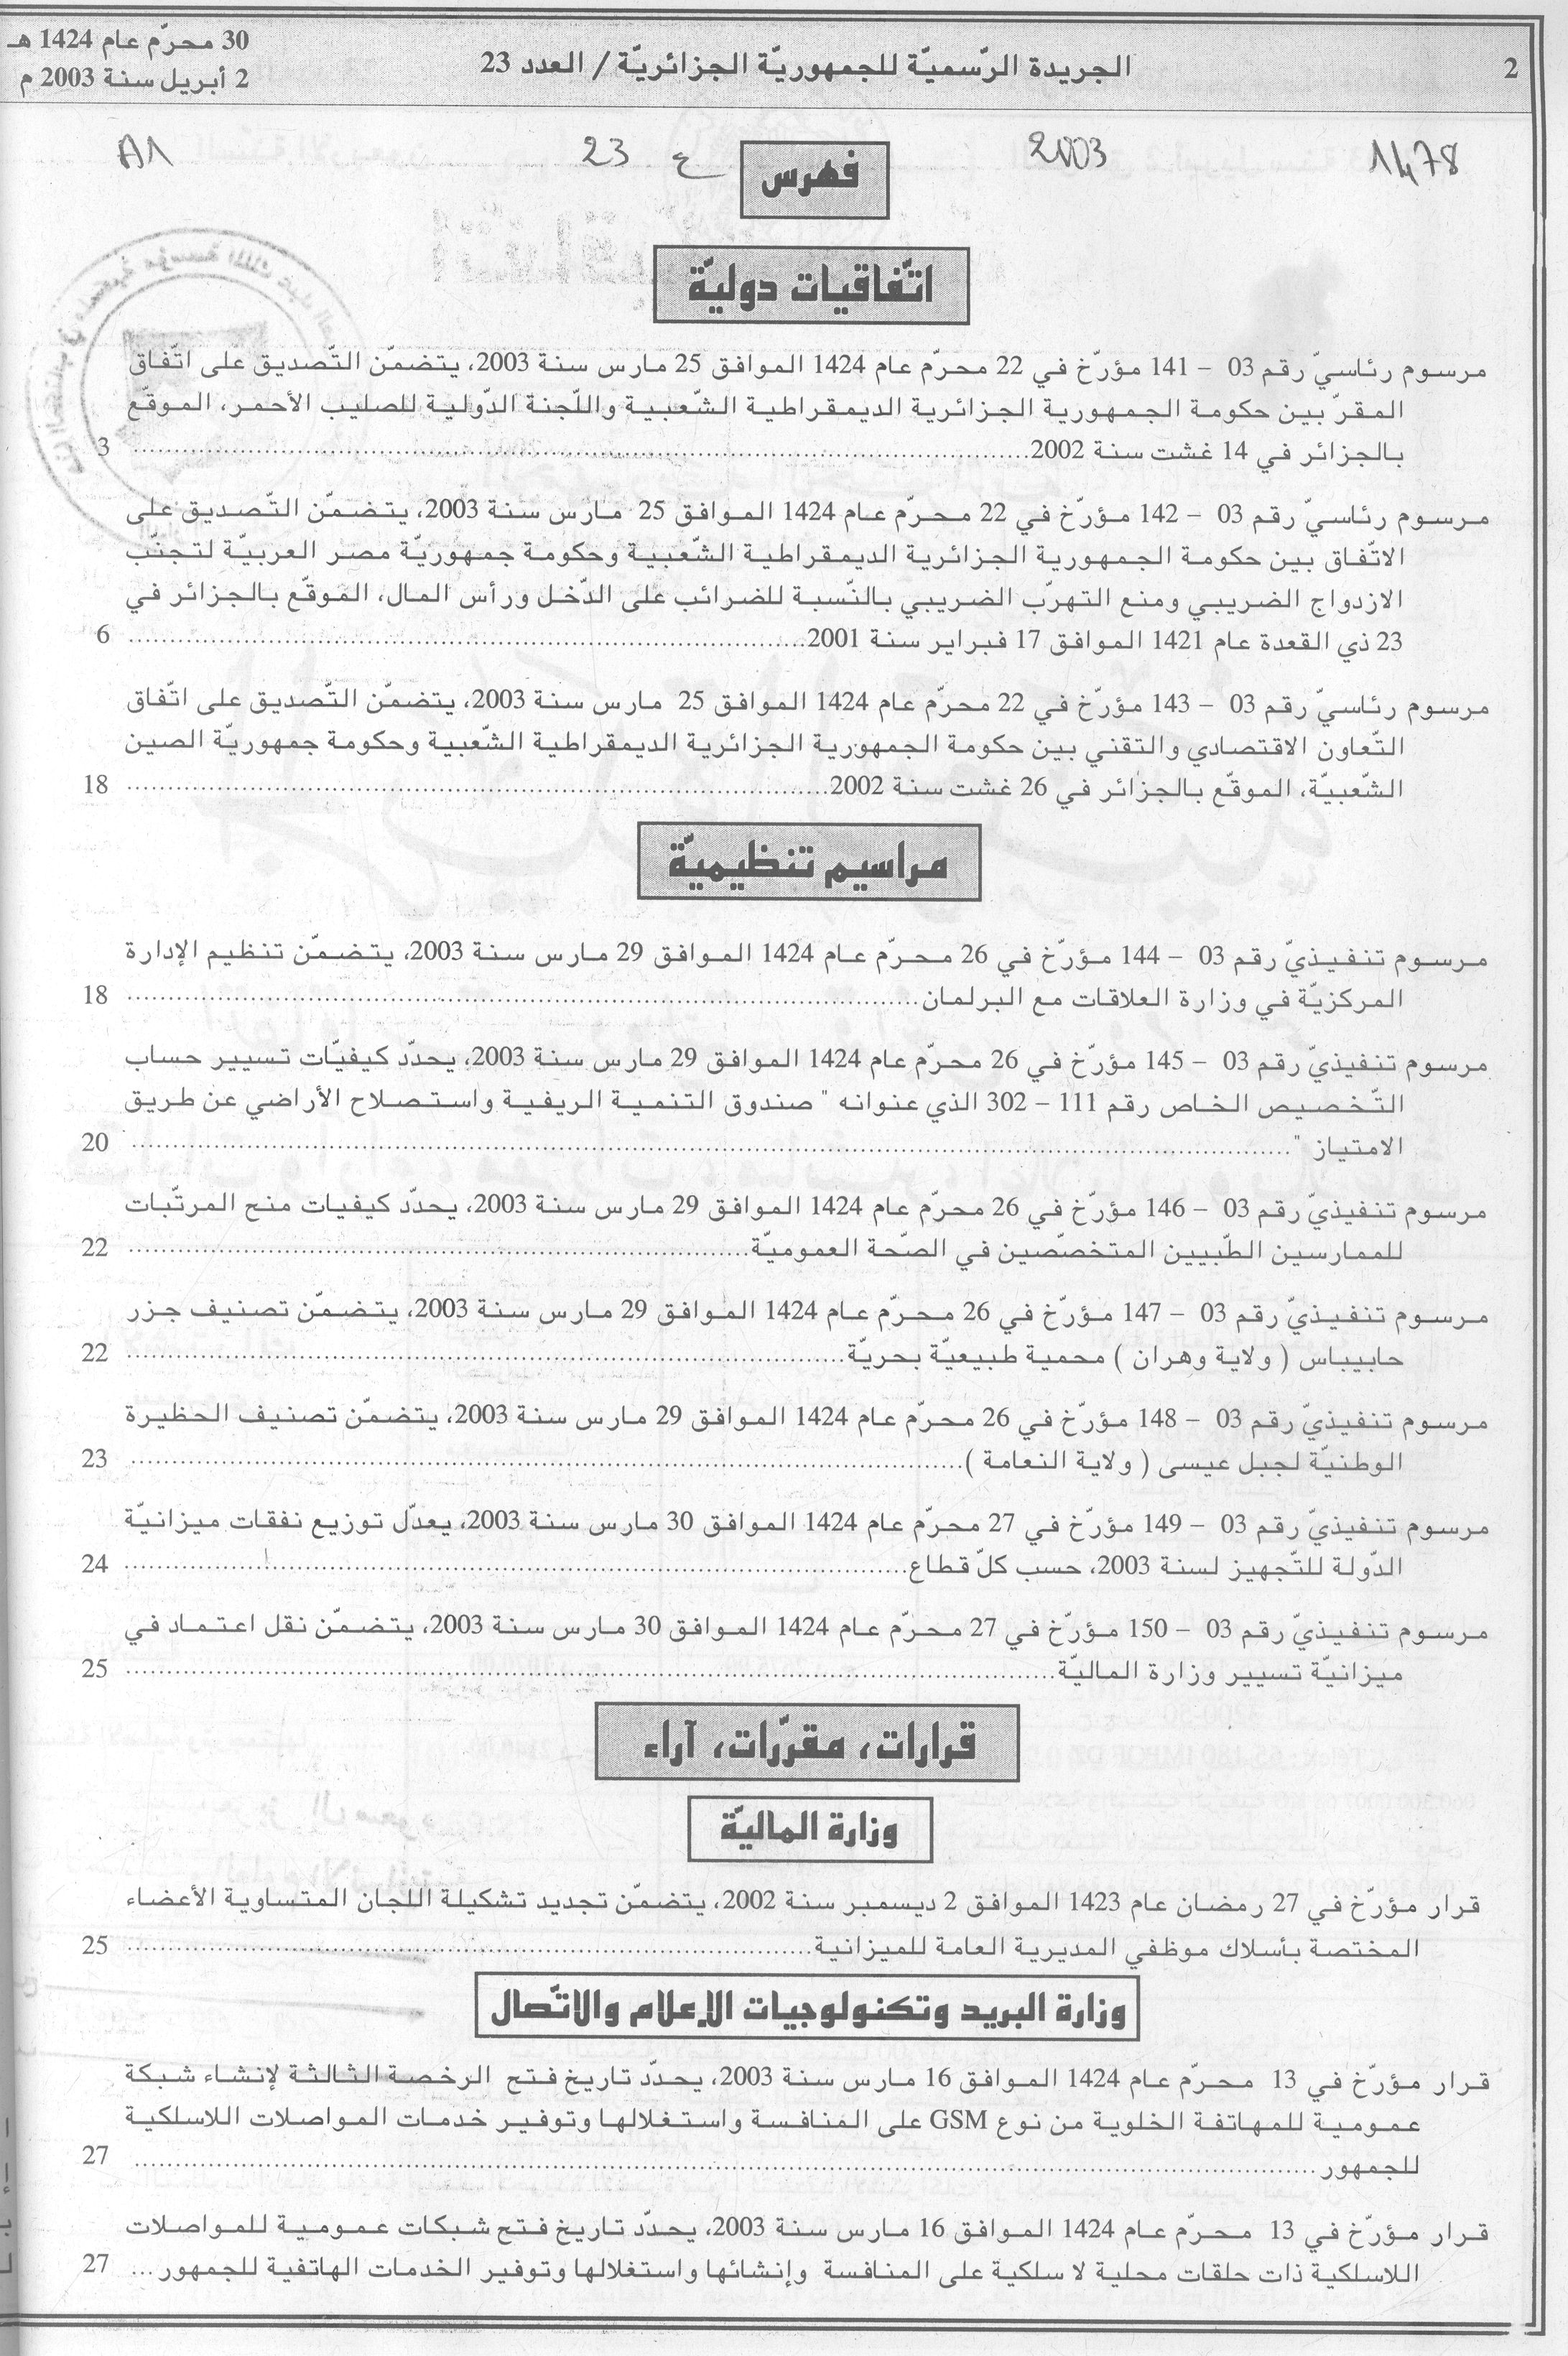 2
الجريدة الرّسميّة للجمهوريّة الجزائريّة / العدد 23
30 محرّم عام 1424 هـ
2 أبريل سنة 2003 م
1478
2003
ع 23
A1
فهرس
اتّفاقيات دوليّة
مرسوم رئاسيّ رقم 03 – 141 مؤرّخ في 22 محرّم عام 1424 الموافق 25 مارس سنة 2003، يتضمّن التّصديق على اتّفاق
المقرّ بين حكومة الجمهورية الجزائرية الديمقراطية الشّعبية واللّجنة الدّولية للصليب الأحمر، الموقّع
بالجزائر في 14 غشت سنة 2002 3
مرسوم رئاسيّ رقم 03 – 142 مؤرّخ في 22 محرّم عام 1424 الموافق 25 مارس سنة 2003، يتضمّن التّصديق على
الاتّفاق بين حكومة الجمهورية الجزائرية الديمقراطية الشّعبية وحكومة جمهوريّة مصر العربيّة لتجنّب
الازدواج الضريبي ومنع التهرّب الضريبي بالنّسبة للضرائب على الدّخل ورأس المال، الموقّع بالجزائر في
23 ذي القعدة عام 1421 الموافق 17 فبراير سنة 2001 6
مرسوم رئاسيّ رقم 03 – 143 مؤرّخ في 22 محرّم عام 1424 الموافق 25 مارس سنة 2003، يتضمّن التّصديق على اتّفاق
التّعاون الاقتصادي والتقني بين حكومة الجمهورية الجزائرية الديمقراطية الشّعبية وحكومة جمهوريّة الصين
الشّعبيّة، الموقّع بالجزائر في 26 غشت سنة 2002 18
مراسيم تنظيميّة
مرسوم تنفيذيّ رقم 03 – 144 مؤرّخ في 26 محرّم عام 1424 الموافق 29 مارس سنة 2003، يتضمّن تنظيم الإدارة
المركزيّة في وزارة العلاقات مع البرلمان 18
مرسوم تنفيذيّ رقم 03 – 145 مؤرّخ في 26 محرّم عام 1424 الموافق 29 مارس سنة 2003، يحدّد كيفيّات تسيير حساب
التّخصيص الخاص رقم 111 – 302 الذي عنوانه " صندوق التنمية الريفية واستصلاح الأراضي عن طريق
الامتياز " 20
مرسوم تنفيذيّ رقم 03 – 146 مؤرّخ في 26 محرّم عام 1424 الموافق 29 مارس سنة 2003، يحدّد كيفيات منح المرتّبات
للممارسين الطّبيين المتخصّصين في الصّحة العموميّة 22
مرسوم تنفيذيّ رقم 03 – 147 مؤرّخ في 26 محرّم عام 1424 الموافق 29 مارس سنة 2003، يتضمّن تصنيف جزر
حابيباس ( ولاية وهران ) محمية طبيعيّة بحريّة 22
مرسوم تنفيذيّ رقم 03 – 148 مؤرّخ في 26 محرّم عام 1424 الموافق 29 مارس سنة 2003، يتضمّن تصنيف الحظيرة
الوطنيّة لجبل عيسى ( ولاية النعامة ) 23
مرسوم تنفيذيّ رقم 03 – 149 مؤرّخ في 27 محرّم عام 1424 الموافق 30 مارس سنة 2003، يعدّل توزيع نفقات ميزانيّة
الدّولة للتّجهيز لسنة 2003، حسب كلّ قطاع 24
مرسوم تنفيذيّ رقم 03 – 150 مؤرّخ في 27 محرّم عام 1424 الموافق 30 مارس سنة 2003، يتضمّن نقل اعتماد في
ميزانيّة تسيير وزارة الماليّة 25
قرارات، مقرّرات، آراء
وزارة الماليّة
قرار مؤرّخ في 27 رمضان عام 1423 الموافق 2 ديسمبر سنة 2002، يتضمّن تجديد تشكيلة اللجان المتساوية الأعضاء
المختصة بأسلاك موظفي المديرية العامة للميزانية 25
وزارة البريد وتكنولوجيات الإعلام والاتّصال
قرار مؤرّخ في 13 محرّم عام 1424 الموافق 16 مارس سنة 2003، يحدّد تاريخ فتح الرخصة الثالثة لإنشاء شبكة
عمومية للمهاتفة الخلوية من نوع GSM على المنافسة واستغلالها وتوفير خدمات المواصلات اللاسلكية
للجمهور 27
قرار مؤرّخ في 13 محرّم عام 1424 الموافق 16 مارس سنة 2003، يحدّد تاريخ فتح شبكات عمومية للمواصلات
اللاسلكية ذات حلقات محلية لا سلكية على المنافسة وإنشائها واستغلالها وتوفير الخدمات الهاتفية للجمهور ... 27